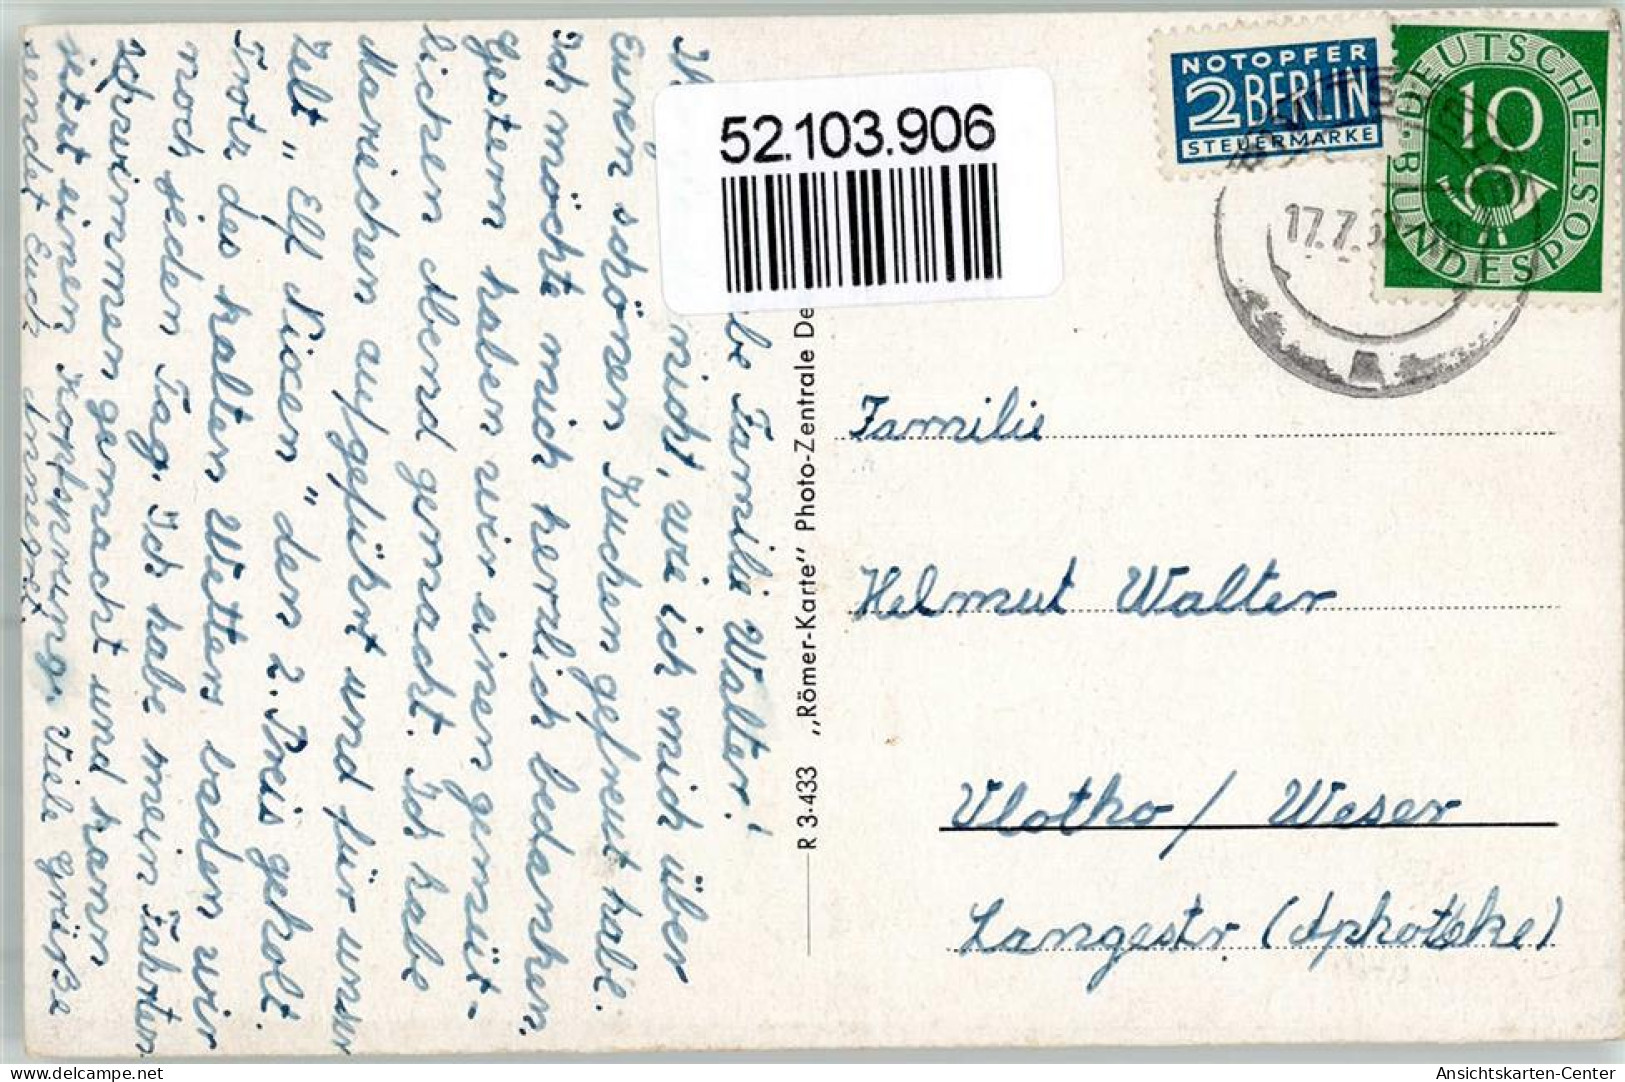 be Familie Walter!
Ih nicht, wie ich mich über
Euren schönen Kuchen gefreut habe.
Ich möchte mich herzlich bedanken.
Gestern haben wir einen gemüt-
lichen Abend gemacht. Ich habe
Mariechen aufgeführt und für unser
Zelt „Elf Nixen" den 2. Preis geholt.
Trotz des kalten Wetters baden wir
noch jeden Tag. Ich habe mein Fahrten
schwimmen gemacht und kann
jetzt einen Kopfsprung. Viele Grüße
sendet Euch Annegret.
R 3·433 „Römer-Karte" Photo-Zentrale De
52.103.906
NOTOPFER
2 BERLIN
STEUERMARKE
DEUTSCHE · BUNDESPOST ·
10
17.7.5
Familie
Helmut Walter
Vlotho / Weser
Langestr (Apotheke)
www.delcampe.net
My-Postcard
Ansichtskarten-Center